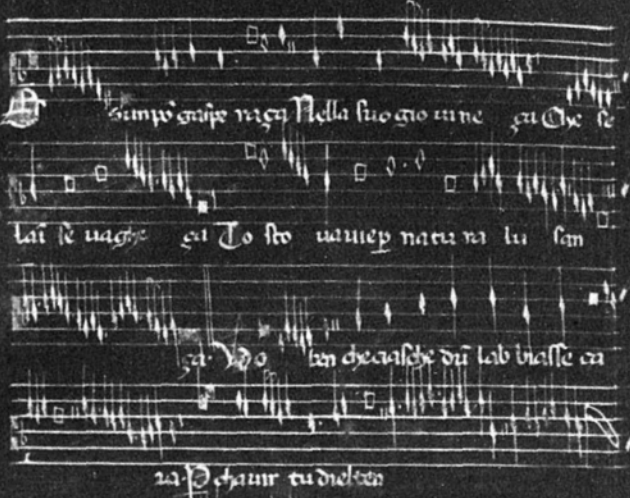 sun po graṇe neça Nella suo gio uine ça Che se
lai se uaghe ça To sto uauiep natu ra lu san
ça. do ben che ciasche dũ lab biasse ca
ra. P chauir tu diel ben